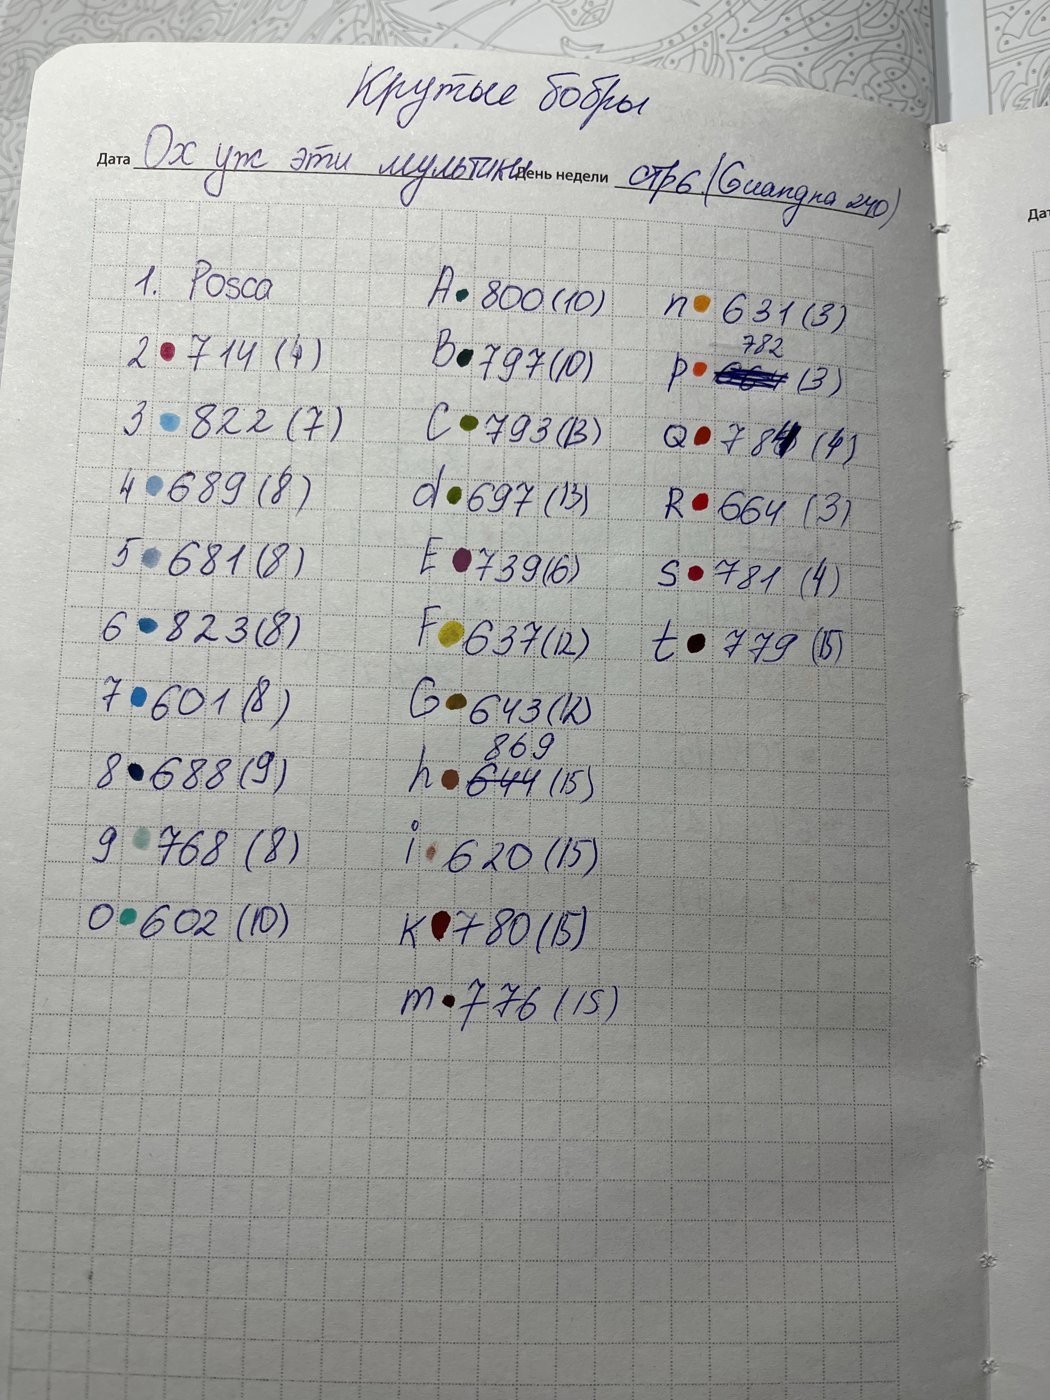 Крутые бобры
Дата Ох уж эти мультики День недели стр6 (Guangna 240)
1. Posca
2 714 (4)
3 822 (7)
4 689 (8)
5 681 (8)
6 823 (8)
7 601 (8)
8 688 (9)
9 768 (8)
0 602 (10)
A 800 (10)
B 797 (10)
C 793 (13)
d 697 (13)
E 739 (6)
F 637 (12)
G 643 (12)
869
h 644 (15)
i 620 (15)
K 780 (15)
m 776 (15)
n 631 (3)
782
P 664 (3)
Q 784 (4)
R 664 (3)
S 781 (4)
t 779 (15)
Дат